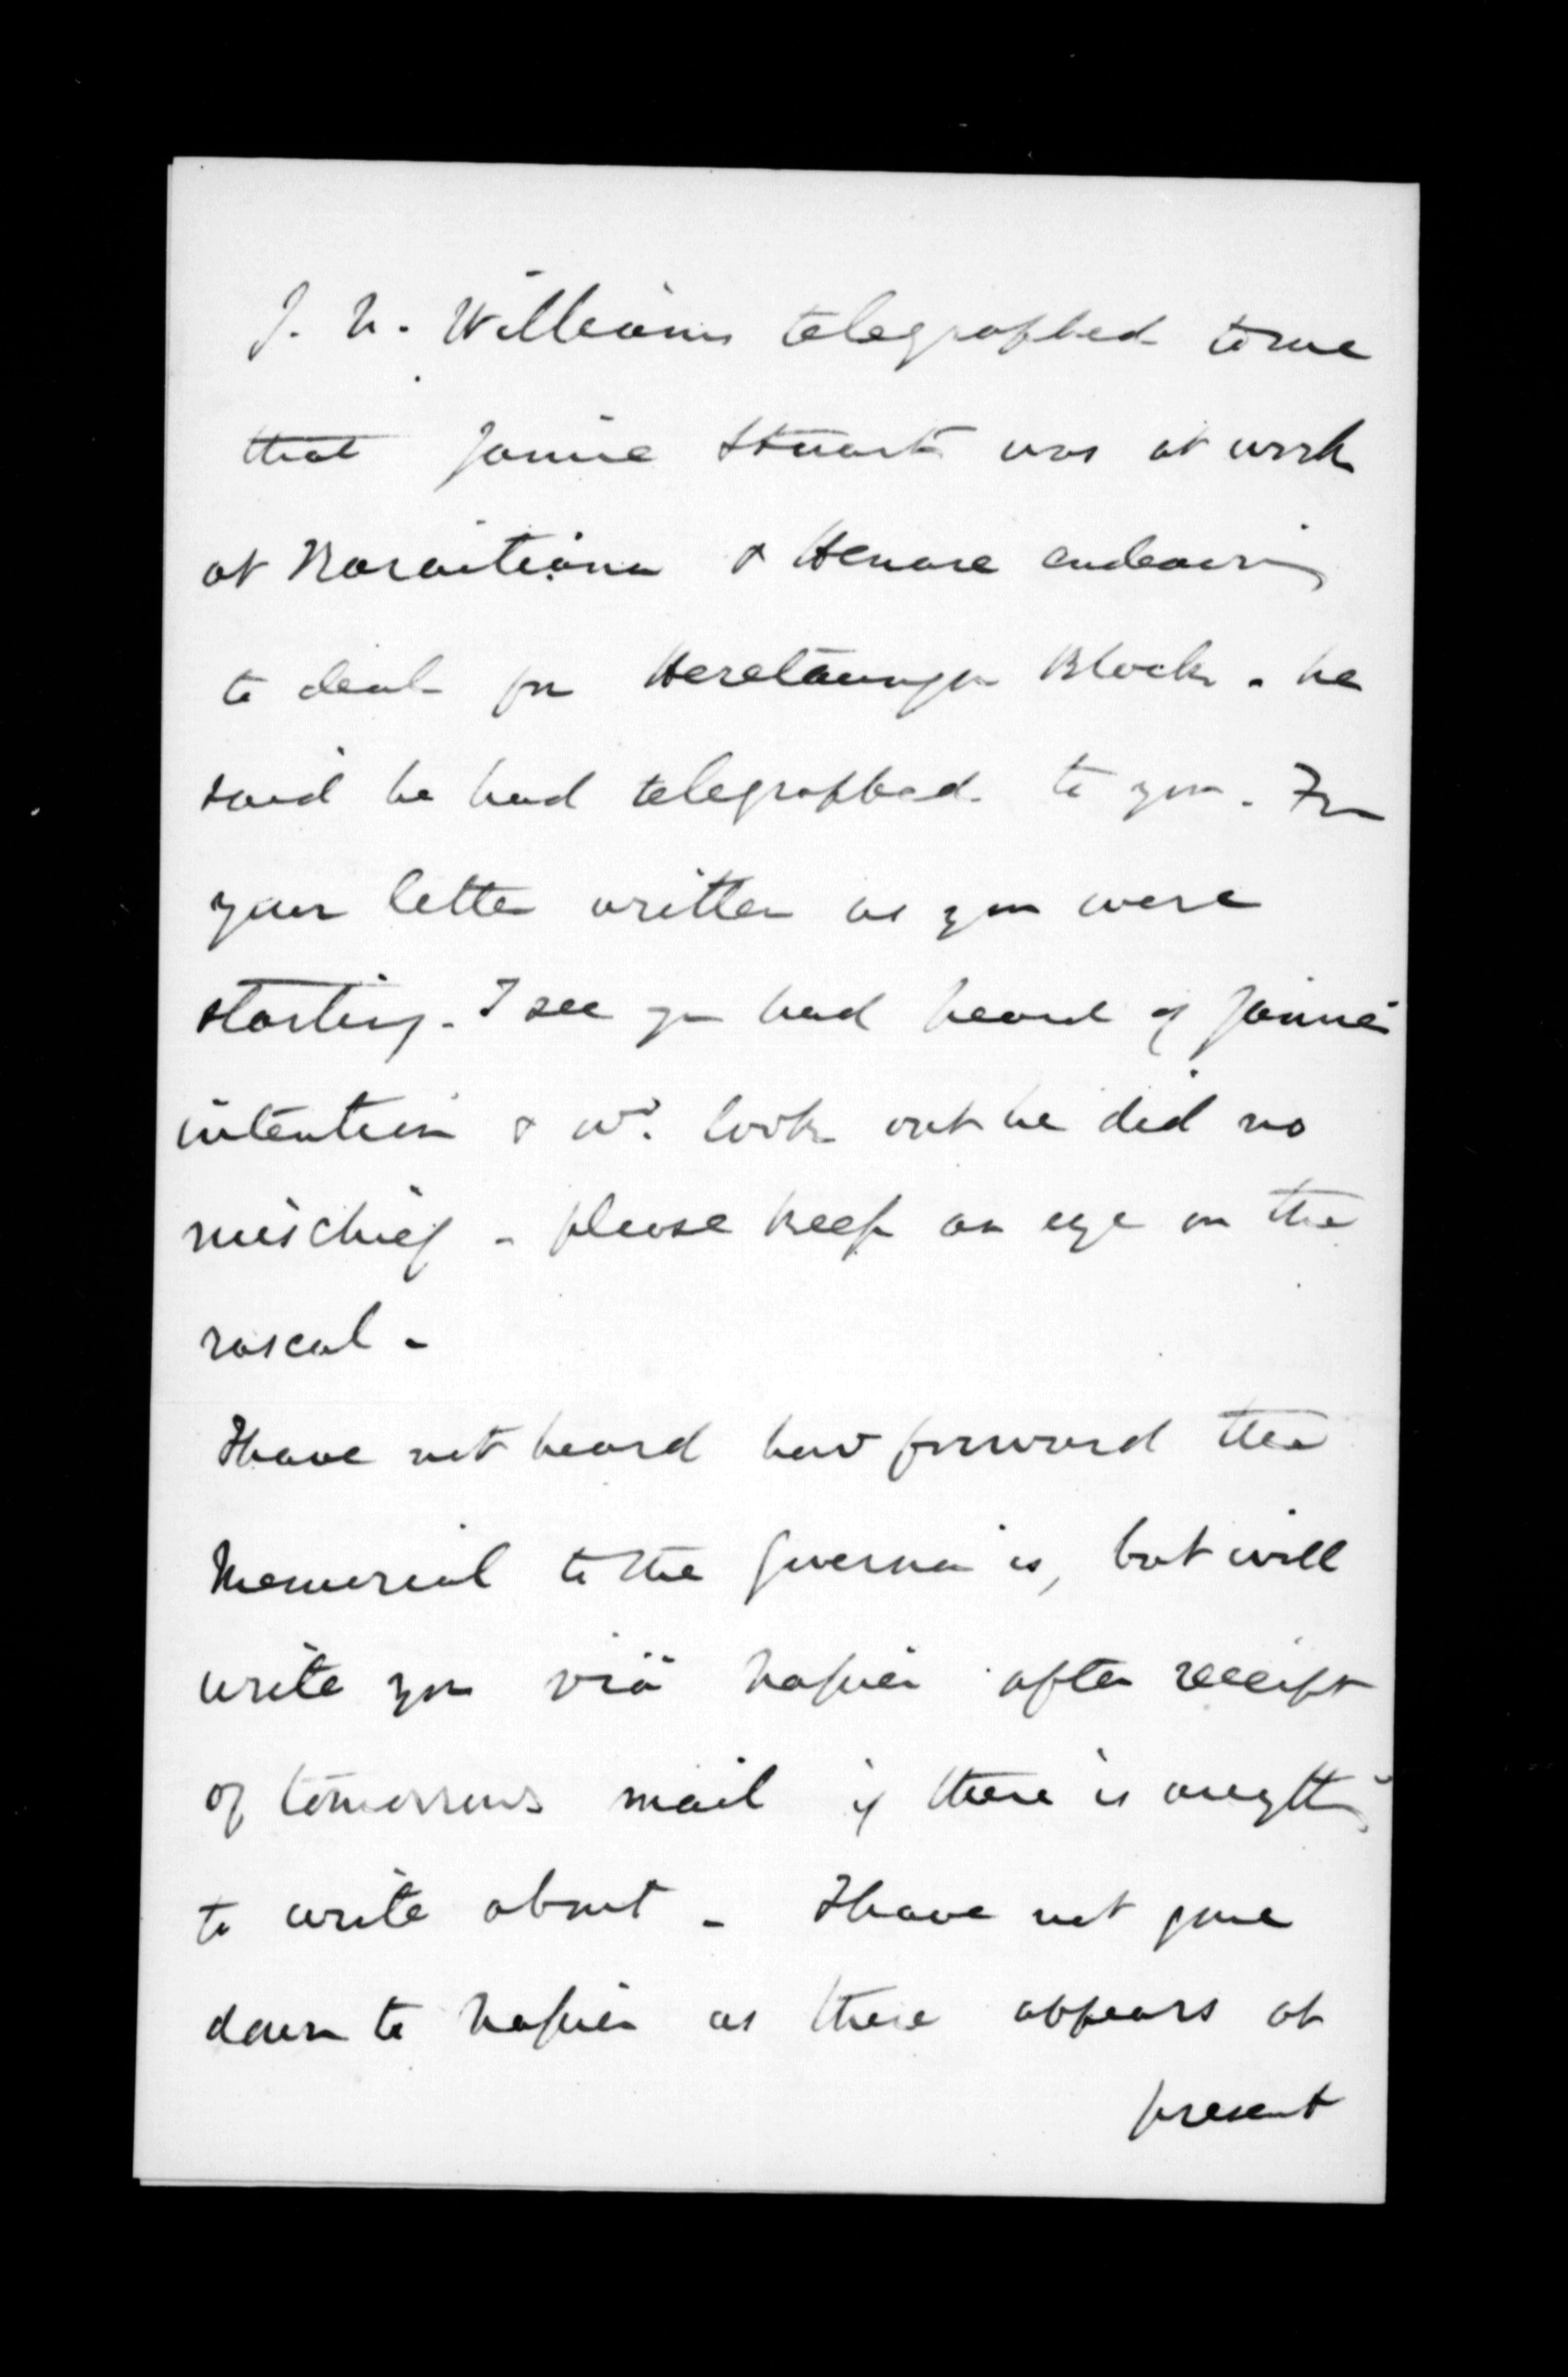 J. N. Williams telegraphed to me
that Jamie Stuart was at work
at Karaitiana & Henare endeavoring
to deal for Heretaunga Block - he
said he had telegraphed to you. From
your letter written as you were
starting - I see you had heard of Jamie's
intention & wd. look out he did no
mischief - please keep an eye on the
rascal -
I have not heard how forward the
Memorial to the Governor is, but will
write you viâ Napier after receipt
of tomorrows mail if there is anything
to write about - I have not gone
down to Napier as there appears at
present